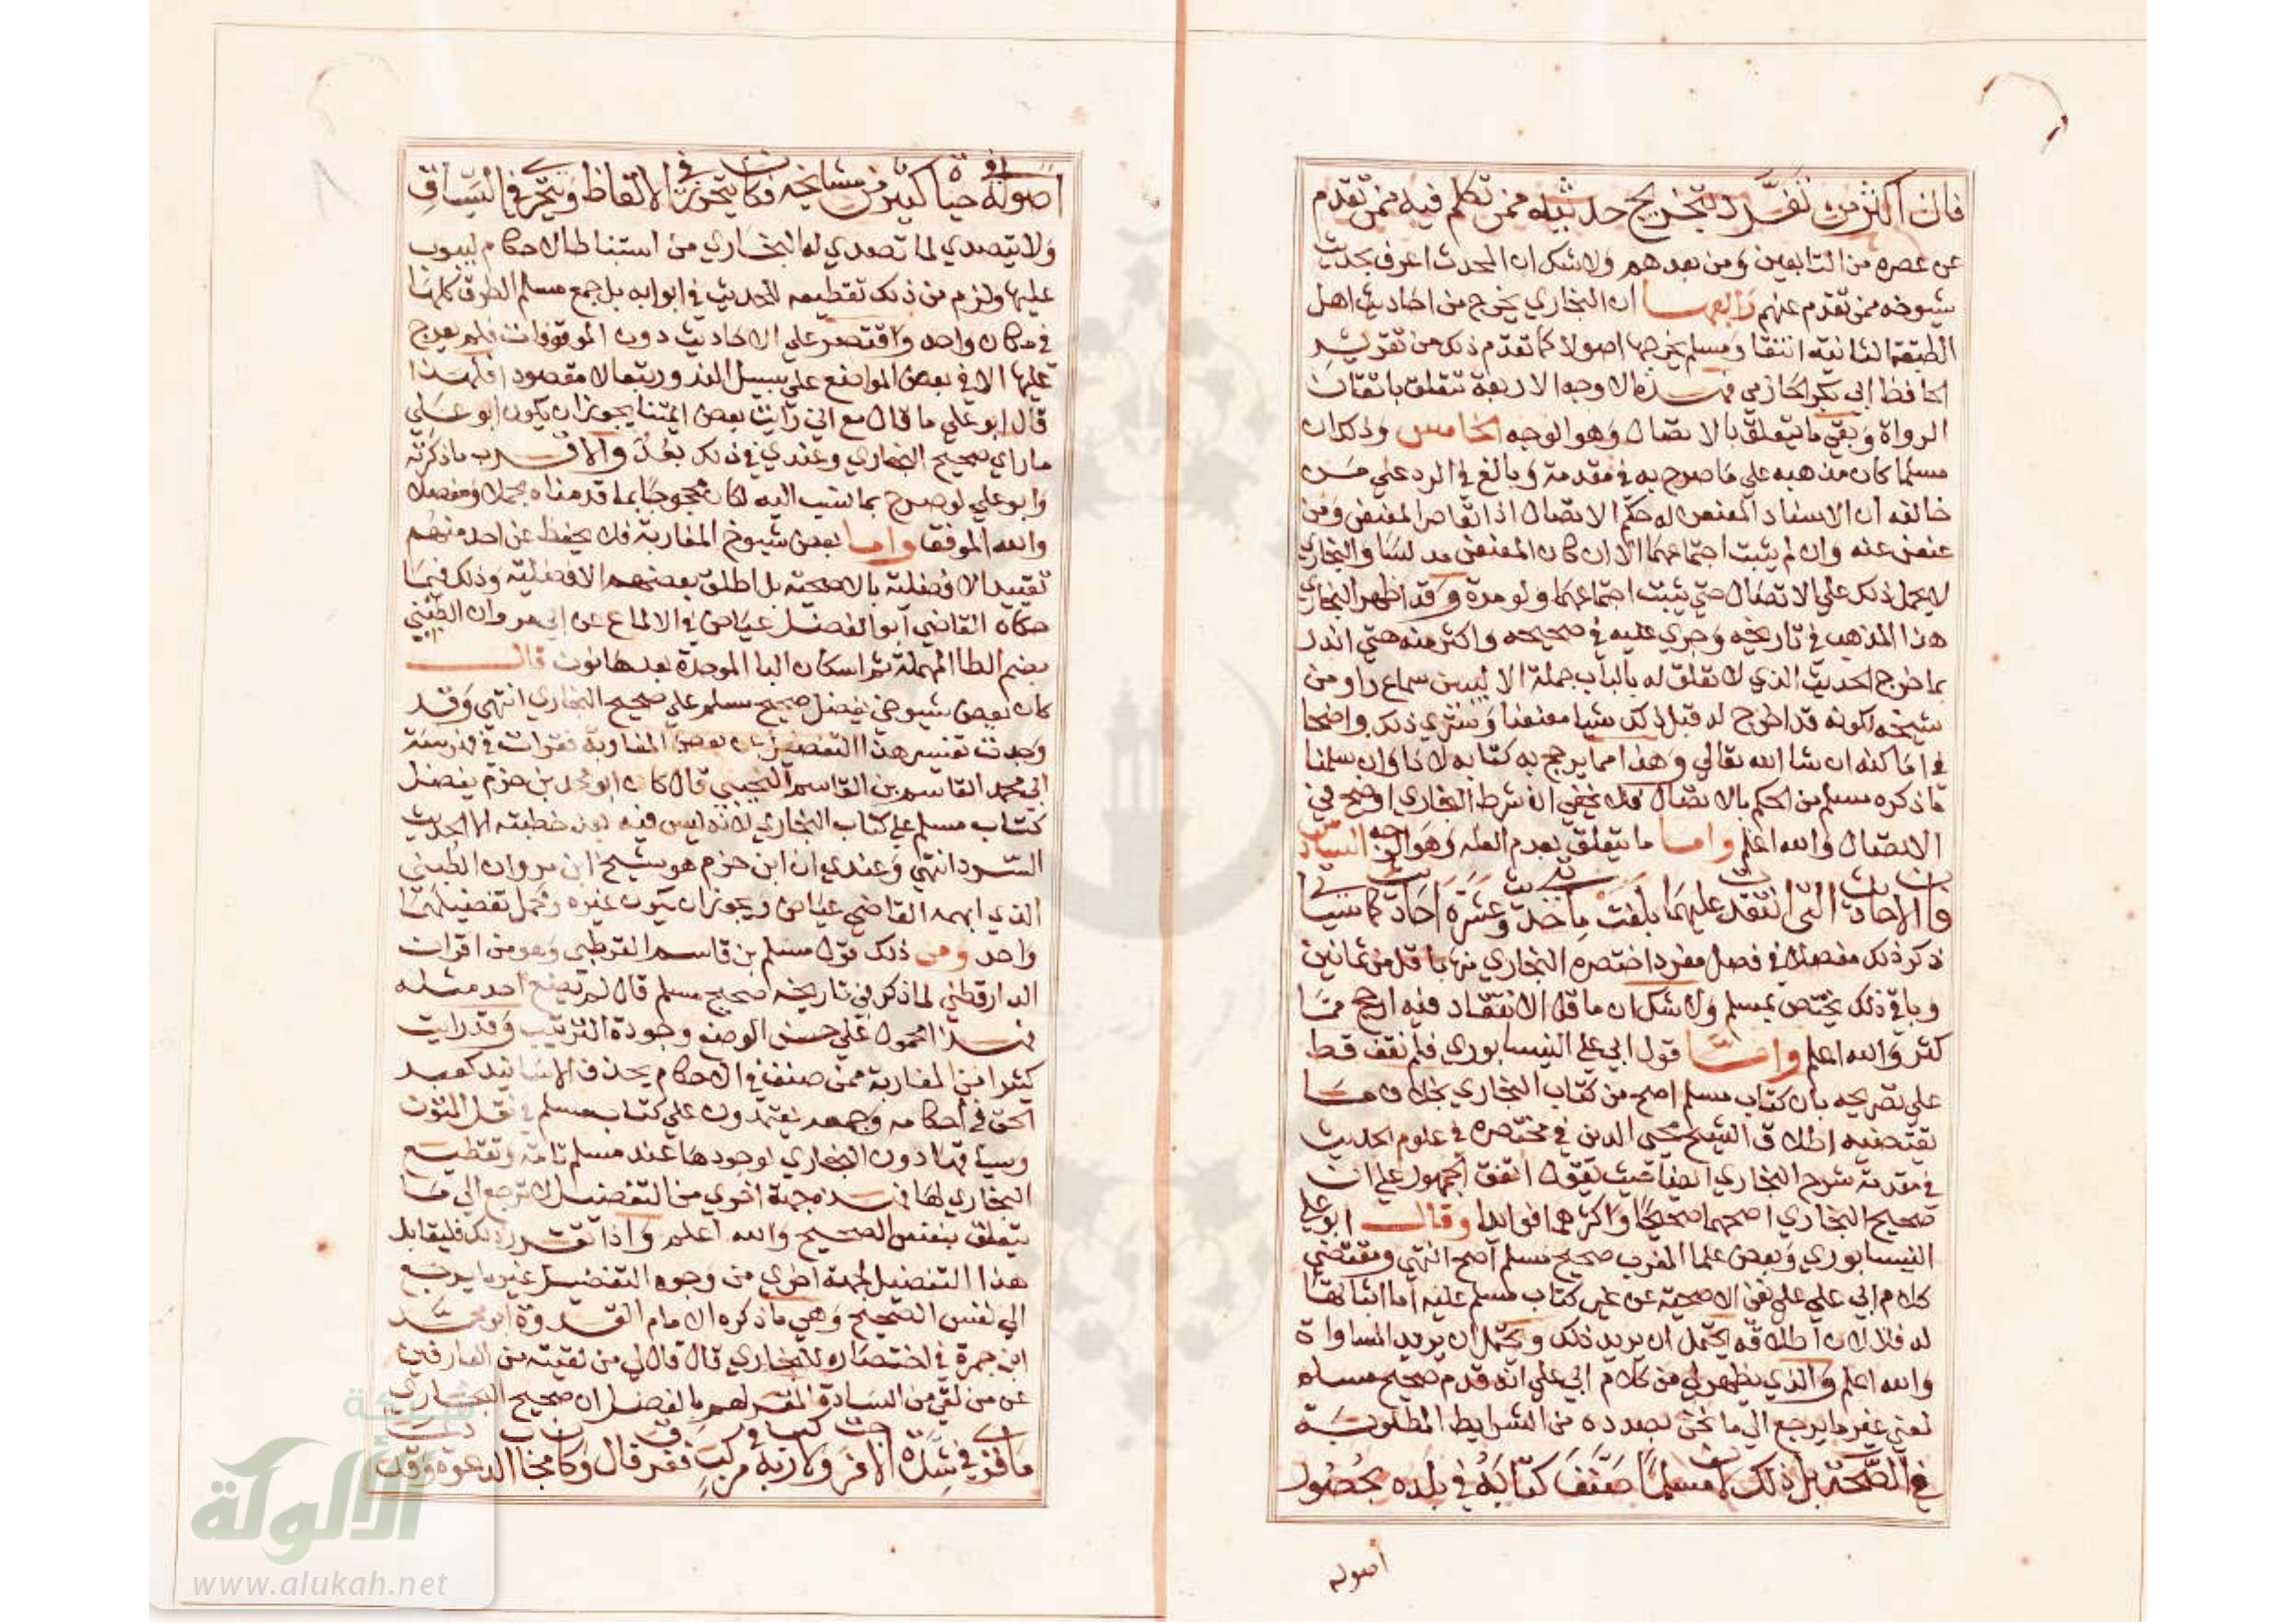 فان اكثر من تفرد بتخريج حديثه ممن تكلم فيه ممن تقدم
عن عصره من التابعين ومن بعدهم ولا شك ان المحدث اعرف بحديث
شيوخه ممن تقدم عنهم رابعها ان البخاري يخرج من احاديث اهل
الطبقة الثانية انتقا ومسلم يخرجها اصولا كما تقدم ذلك من تقرير
الحافظ ابي بكر الحازمي فهذه الاوجه الاربعة تتعلق باتقان
الرواة وبقي ما يتعلق بالاتصال وهو الوجه الخامس وذلك ان
مسلما كان مذهبه علي ما صرح به في مقدمة وبالغ في الرد علي من
خالفه ان الاسناد المعنعن له حكم الاتصال اذا تعاصر المعنعن ومن
عنعن عنه وان لم يثبت اجتماعهما الا ان كان المعنعن مدلسا والبخاري
لا يحمل ذلك علي الاتصال حتي يثبت اجتماعهما ولو مرة وقد اظهر البخاري
هذا المذهب في تاريخه وجري عليه في صحيحه واكثر منه حتي انه
بما خرج الحديث الذي لا تعلق له بالباب جملة الا ليبين سماع راو من
شيخه لكونه قد اخرج له قبل ذلك شيا معنعنا وستري ذلك واضحا
في اماكنه ان شا الله تعالي وهذا مما يرجح به كتابه لانا وان سلمنا
ما ذكره مسلم من الحكم بالاتصال فلا يخفي ان شرط البخاري اوضح في
الاتصال والله اعلم واما ما يتعلق بعدم العلة وهو الوجه السادس
فان الاحاديث التي انتقدت عليهما بلغت مايتي حديث وعشرة احاديث كما سياتي
ذكر ذلك مفصلا في فصل مفرد اختص البخاري منها باقل من ثمانين
وباقي ذلك يختص بمسلم ولا شك ان ما قل الانتقاد فيه ارجح مما
كثر والله اعلم واما قول ابي علي النيسابوري فلم نقف قط
علي تصريحه بان كتاب مسلم اصح من كتاب البخاري بخلاف ما
يقتضيه اطلاق الشيخ محيي الدين في مختصره في علوم الحديث
في مقدمة شرح البخاري ايضا حيث يقول اتفق الجمهور علي ان
صحيح البخاري اصحهما صحيحا واكثرهما فوايدا وقال ابو علي
النيسابوري وبعض علما المغرب صحيح مسلم اصح انتهي ومقتضي
كلام ابي علي علي نفي الاصحية عن غير كتاب مسلم عليه اما اثباتها
له فلا لان اطلاقه يحتمل ان يريد ذلك ويحتمل ان يريد المساواة
والله اعلم والذي يظهر لي من كلام ابي علي انه قدم صحيح مسلم
لمعني غير ما يرجع الي ما نحن بصدده من الشرايط المطلوبة
في الصحة بل ذلك لان مسلما صنف كتابه في بلده بحضور
اصوله
اصوله في حياة كثير من مشايخه فكان يتحرز في الالفاظ ويتحري في السياق
ولا يتصدي لما تصدي له البخاري من استنباط الاحكام ليبوب
عليها ولزم من ذلك تقطيعه للحديث في ابوابه بل جمع مسلم الطرق كلها
في مكان واحد واقتصر علي الاحاديث دون الموقوفات فلم يعرج
عليها الا في بعض المواضع علي سبيل الندور تبعا لا مقصودا فلهذا
قال ابو علي ما قال مع اني رايت بعض ايمتنا يجوز ان يكون ابو علي
ما راي صحيح البخاري وعندي في ذلك بعد والاقرب ما ذكرته
وابو علي لو صرح بما نسب اليه لكان محجوجا بما قدمناه مجملا ومفصلا
والله الموفق واما بعض شيوخ المغاربة فلا يحفظ عن احد منهم
تقييد الافضلية بالاصحية بل اطلق بعضهم الافضلية وذلك فيما
حكاه القاضي ابو الفضل عياض في الالماع عن ابي مروان الطبني
بضم الطا المهملة ثم اسكان البا الموحدة بعدها نون قال
كان بعض شيوخي يفضل صحيح مسلم علي صحيح البخاري انتهي وقد
وجدت تفسير هذا التفضيل عن بعض المغاربة فقرات في فهرسة
ابي محمد القاسم بن القاسم التجيبي قال كان ابو محمد بن حزم يفضل
كتاب مسلم علي كتاب البخاري لانه ليس فيه بعد خطبته الا الحديث
السرد انتهي وعندي ان ابن حزم هو شيخ ابن مروان الطبني
الذي ابهمه القاضي عياض ويجوز ان يكون غيره ومحمل تفضيلهما
واحد ومن ذلك قول مسلم بن قاسم القرطبي وهو من اقران
الدارقطني لما ذكر في تاريخه صحيح مسلم قال لم يضع احد مثله
فهذا محمول علي حسن الوضع وجودة الترتيب وقد رايت
كثيرا من المغاربة ممن صنف في الاحكام يحذف الاسانيد كعبد
الحق في احكامه وجمعه يعتمدون علي كتاب مسلم في نقل المتون
وسياقها دون البخاري لوجودها عند مسلم تامة وتقطيع
البخاري لها فهذه جهة اخري من التفضيل لا ترجع الي ما
يتعلق بنفس الصحيح والله اعلم واذا تقرر ذلك فليقابل
هذا التفضيل بجهة اخري من وجوه التفضيل غير ما يرجع
الي نفس الصحيح وهي ما ذكره الامام القدوة ابو محمد
ابن جمرة في اختصاره للبخاري قال قال لي من لقيته من العارفين
عن من لقي من السادة المقر لهم بالفضل ان صحيح البخاري
ما قري في شدة الا فرجت ولا ركب به في مركب فغرق قال وكان مجاب الدعوة وقد
شبكة
الألوكة
www.alukah.net